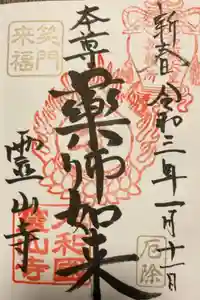 新春 令和三年一月十一日
厄除
本尊
薬師如来
笑門
来福
霊山寺
大和國
霊山寺